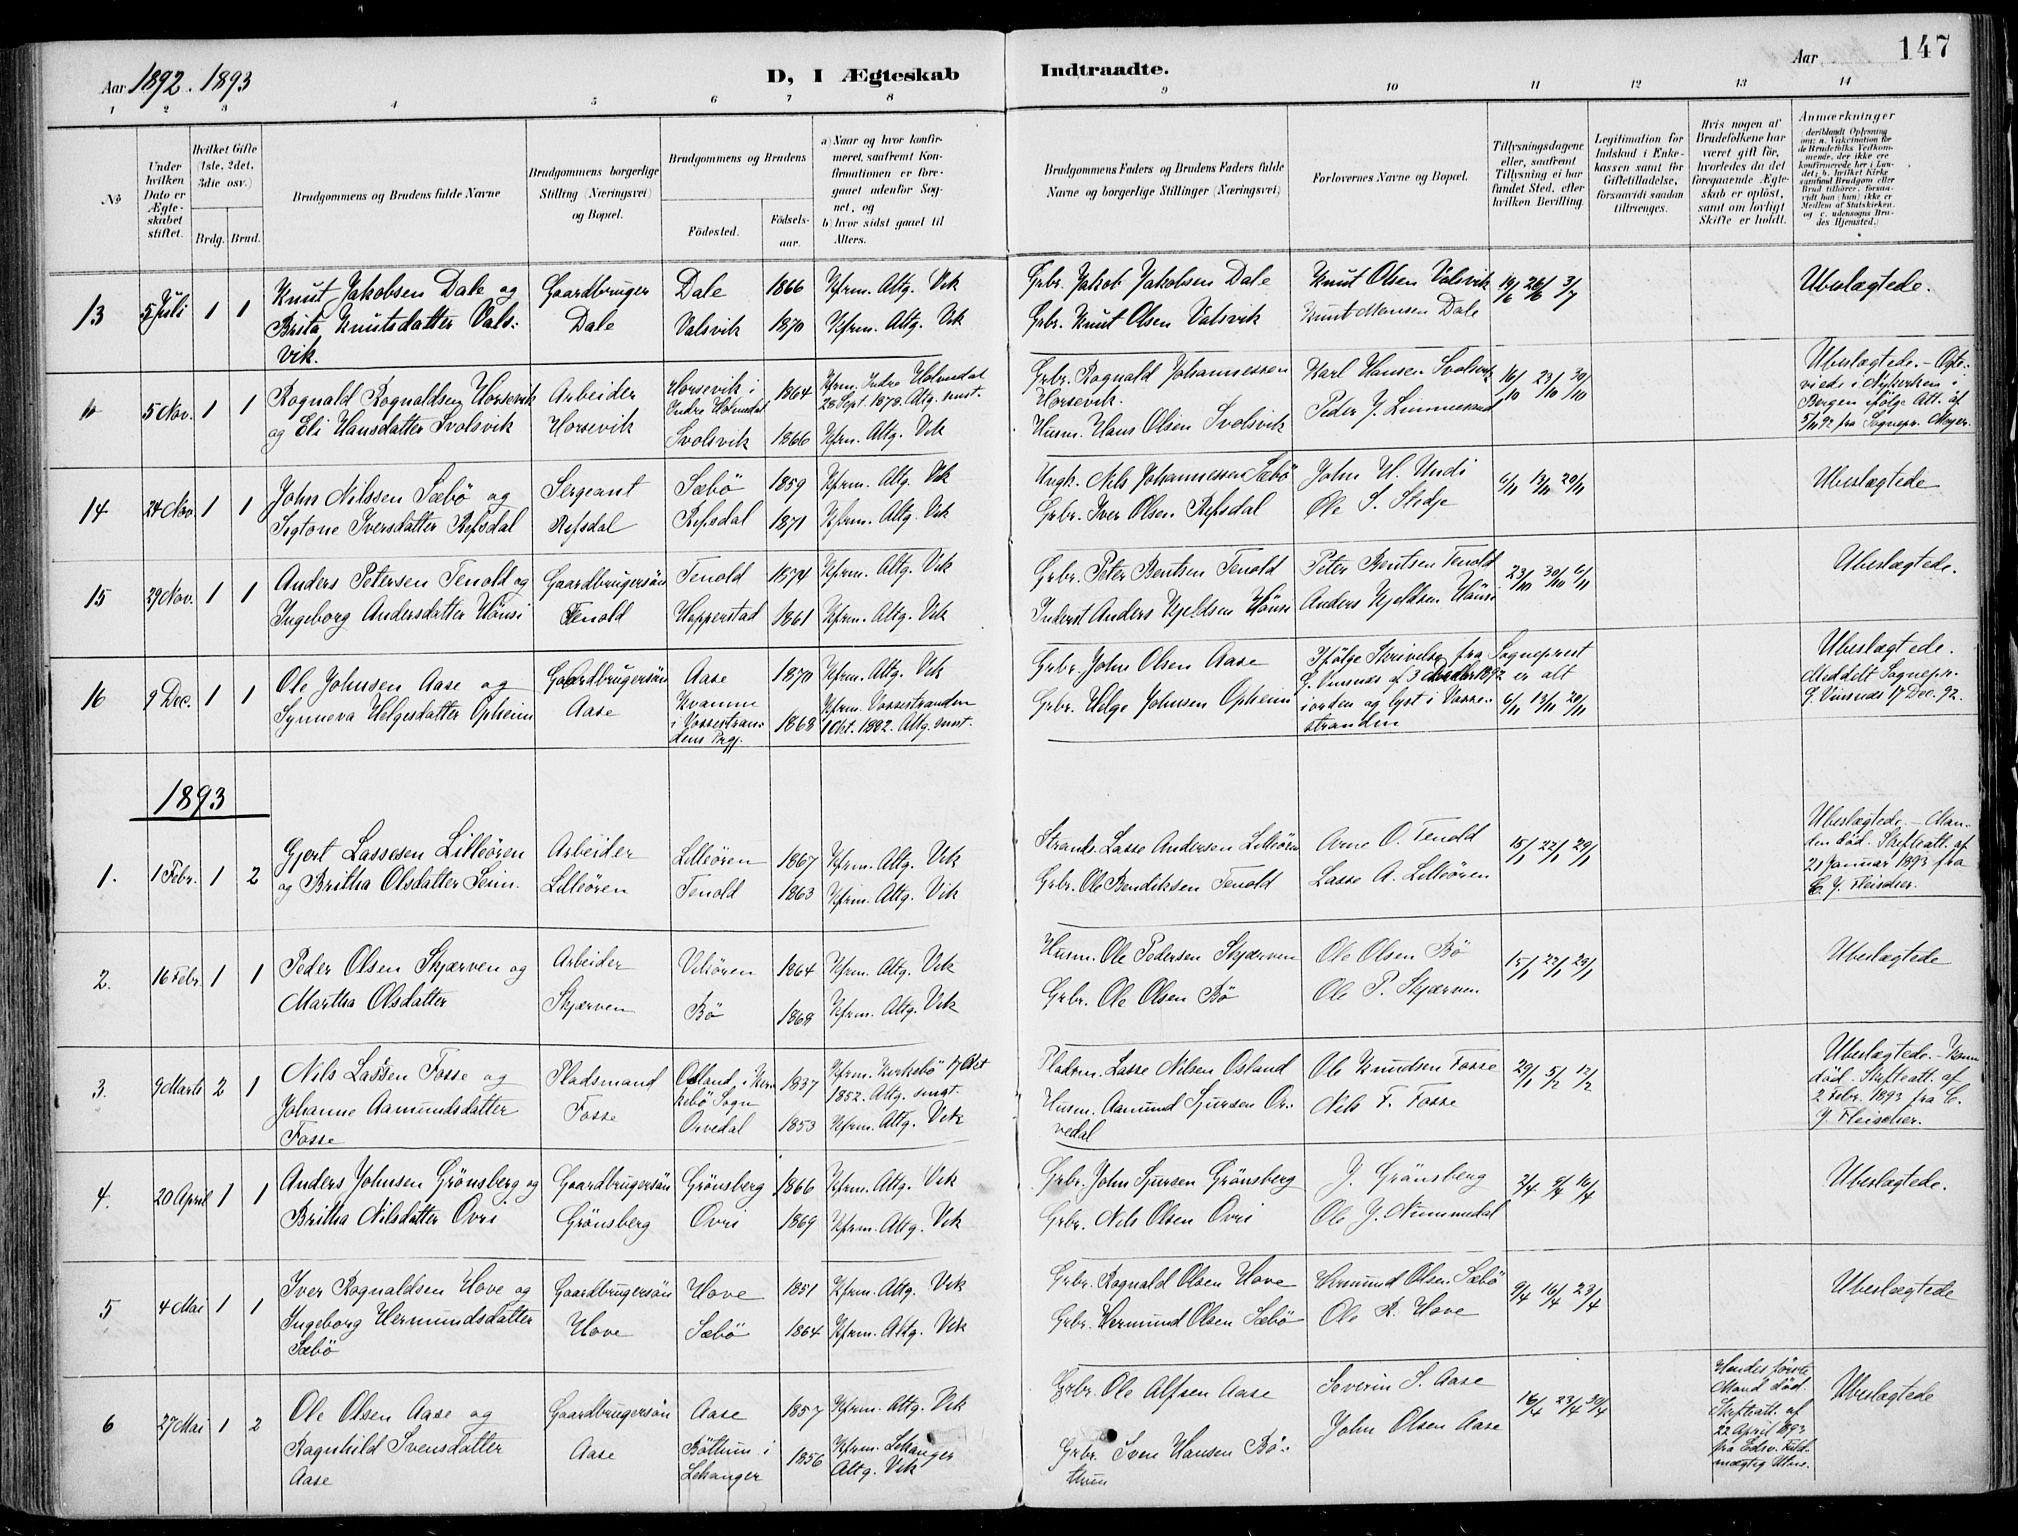 Aar 1892. 1893
D, I Ægteskab Indtraadte.
Aar 147
1 2 3 4 5 6 7 8 9 10 11 12 13 14
No
Under hvilken Dato er Ægteskabet stiftet.
Hvilket Gifte (1ste, 2det, 3die osv.)
Brdg. Brud.
Brudgommens og Brudens fulde Navne
Brudgommens borgerlige Stilling (Næringsvei) og Bopæl.
Brudgommens og Brudens
Fødested. Fødselsaar.
a) Naar og hvor konfirmeret, saafremt Konfirmationen er foregaaet udenfor Sognet, og
b) hvor sidst gaaet til Alters.
Brudgommens Faders og Brudens Faders fulde Navne og borgerlige Stillinger (Næringsvei)
Forlovernes Navne og Bopæl.
Tillysningsdagene eller, saafremt Tillysning ei har fundet Sted, efter hvilken Bevilling.
Legitimation for Indskud i Enkekassen samt for Giftetilladelse, forsaavidt saadan tiltrænges.
Hvis nogen af Brudefolkene har været gift før, hvorledes da det foregaaende Ægteskab er opløst, samt om lovligt Skifte er holdt.
Anmærkninger (deriblandt Oplysning om: a. Vaccination for de Brudefolks Vedkommende, der ikke ere konfirmerede her i Landet; b. hvilket Kirkesamfund Brudgom eller Brud tilhører, forsaavidt han (hun) ikke er Medlem af Statskirken, og c. udensogns Brudes Hjemsted.)
13 5 Juli 1 1 Knut Jakobsen Dale og Gaardbruger Dale 1866 Kfrm. Altg. Vik Grbr. Jakob Jakobsen Dale Knut Olsen Valsvik 19/6 26/6 3/7 Ubeslægtede.
Brita Knutsdatter Vals- Dale Valsvik 1870 Kfrm. Altg. Vik Grbr. Knut Olsen Valsvik Knut Monsen Dale
vik.
5 Nov. 1 1 Rognald Rognaldsen Horsevik Arbeider Horsevik i Indre Holmedal 1864 Kfrm. Indre Holmedal 28 Sept. 1878. Altg. smst. Grbr. Rognald Johannessen Horsevik. Karl Hansen Svolsvik 16/10 23/10 30/10 Ubeslægtede. - Ægteviede i Nykirken i Bergen ifølge Att. af 5/11 92 fra Sognepr. Meyer.
og Eli Hansdatter Svolsvik Horsevik Svolsvik 1866 Kfrm. Altg. Vik Husm. Hans Olsen Svolsvik Peder J. Limmesand
14 24 Nov. 1 1 John Nilssen Sæbö og Sergeant Sæbö 1859 Kfrm. Altg. Vik Ungk. Nils Johannessen Sæbö John H. Undi 6/11 13/11 20/11 Ubeslægtede
Sigtone Iversdatter Refsdal Refsdal Refsdal 1871 Kfrm. Altg. Vik Grbr. Iver Olsen Refsdal Ole S. Stedje
15 29 Nov. 1 1 Anders Petersen Tenold og Gaardbrugersön Tenold 1874 Kfrm. Altg. Vik Grbr. Peter Bentsen Tenold Peter Bentsen Tenold 23/10 30/10 6/11 Ubeslægtede.
Ingeborg Andersdatter Hönsi Tenold Hopperstad 1861 Kfrm. Altg. Vik Inderst Anders Kjeldsen Hönsi Anders Kjeldsen Hönsi
16 9 Dec. 1 1 Ole Johnsen Aase og Gaardbrugersön Aase 1870 Kfrm. Altg. Vik Grbr. John Olsen Aase Ifölge Skrivelse fra Sogneprest G. Vinsnes af 3 1892 er alt iorden og lyst i Vossestranden 6/11 13/11 20/11 Ubeslægtede. Meddelt Sognepr. G. Vinsnes 17 Dec. 92.
Synneva Helgesdatter Opheim Aase Kvamme i Vossestrandens Prgj. 1868 Kfrm. Vossestranden 1 Okt. 1882. Altg. smst. Grbr. Helge Johnsen Opheim
1893
1. 1 Febr. 1 2 Gjert Lassesen Lilleören Arbeider Lilleören 1867 Kfrm. Altg. Vik Strands. Lasse Andersen Lilleören Arne O. Tenold 15/1 22/1 29/1 Ubeslægtede. - Manden död. Skifteatt. af 21 Januar 1893 fra C. J. Fleischer.
og Britha Olsdatter Seim. Lilleören Tenold 1863 Kfrm. Altg. Vik Grbr. Ole Bendiksen Tenold Lasse A. Lilleören
2. 16 Febr. 1 1 Peder Olsen Skjærven og Arbeider Vikören 1864 Kfrm. Altg. Vik Husm. Ole Pedersen Skjærven Ole Olsen Bö 15/1 22/1 29/1 Ubeslægtede
Martha Olsdatter Skjærven Bö 1868 Kfrm. Altg. Vik Grbr. Ole Olsen Bö Ole P. Skjærven
3. 9 Marts 2 1 Nils Lassen Fosse og Pladsmand Osland i Kirkebö Sogn 1837 Kfrm. Kirkebö 17 Okt 1852. Altg. smst. Pladsm. Lasse Nilsen Osland Ole Knudsen Fosse 29/1 5/2 12/2 Ubeslægtede. - Konen död. Skifteatt. af 2 Febr. 1893 fra C. J. Fleischer.
Johanne Aamundsdatter Fosse Fosse Orvedal 1853 Kfrm. Altg. Vik Husm. Aamund Sjursen Orvedal Nils T. Fosse
4. 20 April 1 1 Anders Johnsen Grönsberg og Gaardbrugersön Grönsberg 1866 Kfrm. Altg. Vik Grbr. John Sjursen Grönsberg J. Grönsberg 2/4 9/4 16/4 Ubeslægtede.
Britha Nilsdatter Ovri Grönsberg Ovri 1869 Kfrm. Altg. Vik Grbr. Nils Olsen Ovri Ole J. Nummedal
5 4 Mai 1 1 Iver Rognaldsen Hove og Gaardbrugersön Hove 1851 Kfrm. Altg. Vik Grbr. Rognald Olsen Hove Hermund Olsen Sæbö 9/4 16/4 23/4 Ubeslægtede
Ingeborg Hermundsdatter Sæbö Hove Sæbö 1864 Kfrm. Altg. Vik Grbr. Hermund Olsen Sæbö Ole R. Hove
6 27 Mai 1 2 Ole Olsen Aase og Gaardbrugersön Aase 1857 Kfrm. Altg. Vik Grbr. Ole Alfsen Aase Severin S. Aase 16/4 23/4 30/4 Hendes förste Mand död. Skifteatt. af 22 April 1893 fra Edsv. Fuldmægtig Ubeslægtede
Ragnhild Svensdatter Aase Aase Böttun i Lekanger 1856 Kfrm. Lekanger Altg. Vik Grbr. Sven Hansen Böthun John Olsen Aase